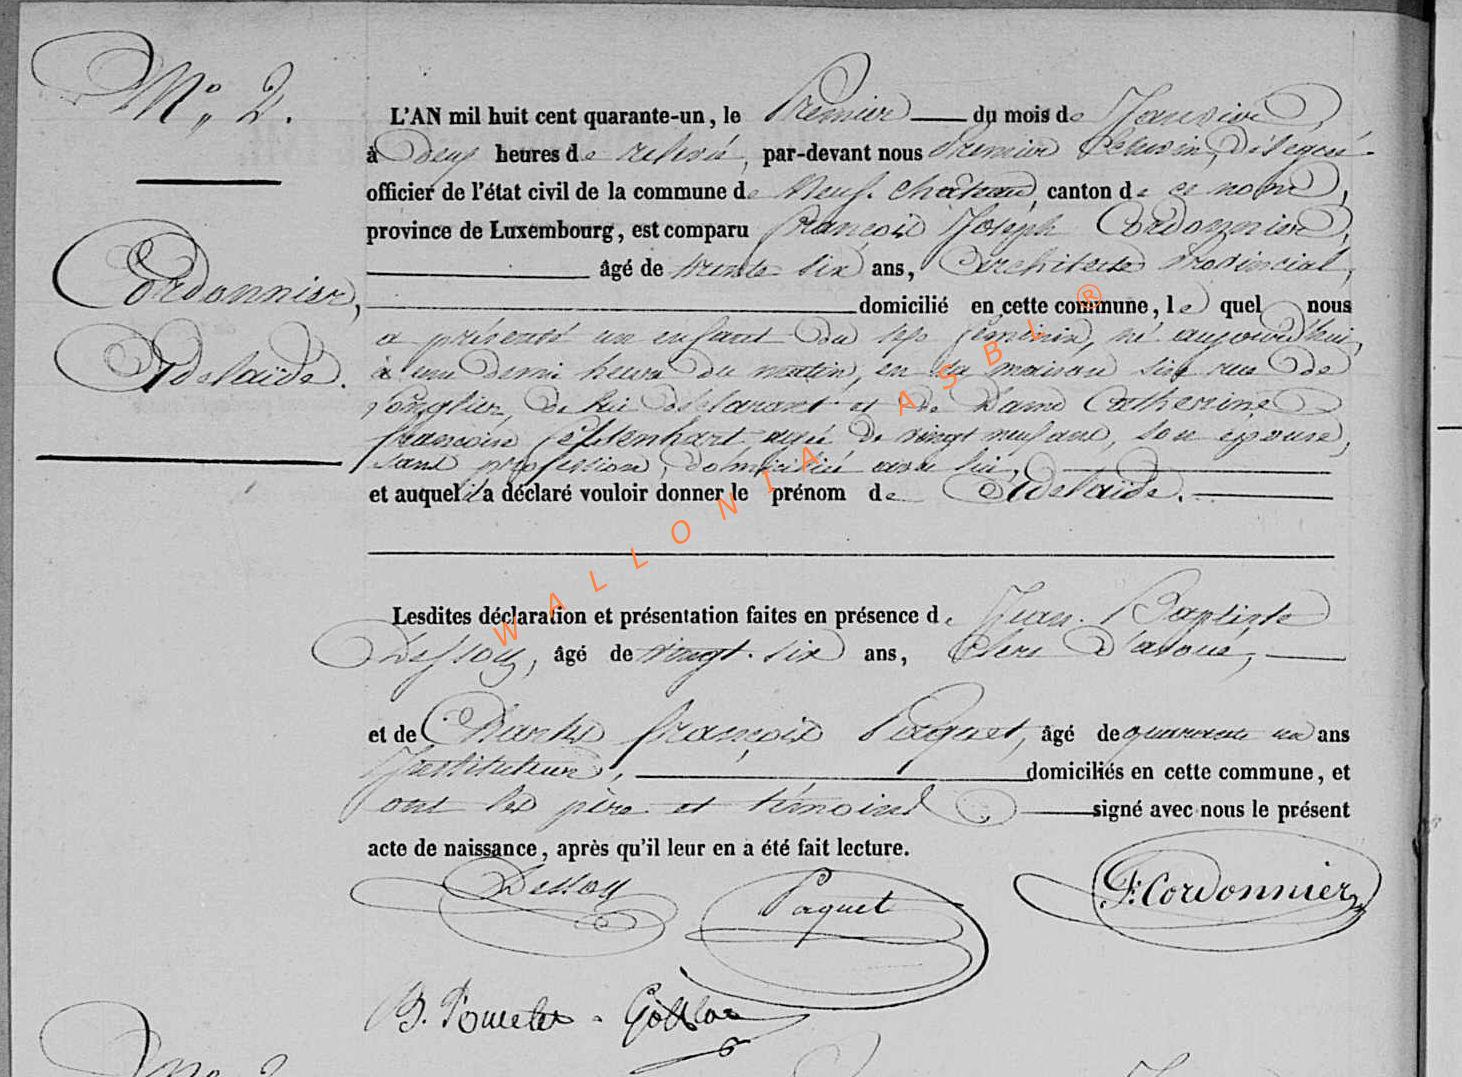 N°. 2.
Cordonnier,
Adelaïde.
L'AN mil huit cent quarante-un, le Premier du mois de Janvier,
à Deux heures de relevée, par-devant nous Premier Echevin, délégué
officier de l'état civil de la commune de Neuf-château, canton de ce nom,
province de Luxembourg, est comparu François Joseph Cordonnier,
âgé de trente six ans, Architecte Provincial,
domicilié en cette commune, lequel nous
a présenté un enfant du sexe féminin, né aujourd'hui,
à une demi heure du matin, en sa maison sise rue de
Longlier, de lui déclarant et de Dame Catherine
françoise agée de vingt neuf ans, son épouse,
sans profession, domiciliée avec lui,
et auquel il a déclaré vouloir donner le prénom de Adelaïde.
Lesdites déclaration et présentation faites en présence de Jean-Baptiste
Dessoy, âgé de vingt-six ans, Clerc d'avoué,
et de Charles françois Paquet, âgé de quarante un ans
Instituteur, domiciliés en cette commune, et
ont les père et témoins signé avec nous le présent
acte de naissance, après qu'il leur en a été fait lecture.
Dessoy
Paquet
F. Cordonnier
WALLONIA ASBL ®